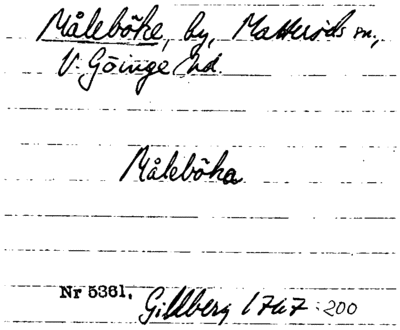 Måleböke, by, Matteröds sn.,
V. Göinge hd.
Måleböka
Nr 5361. Gillberg 1767:200